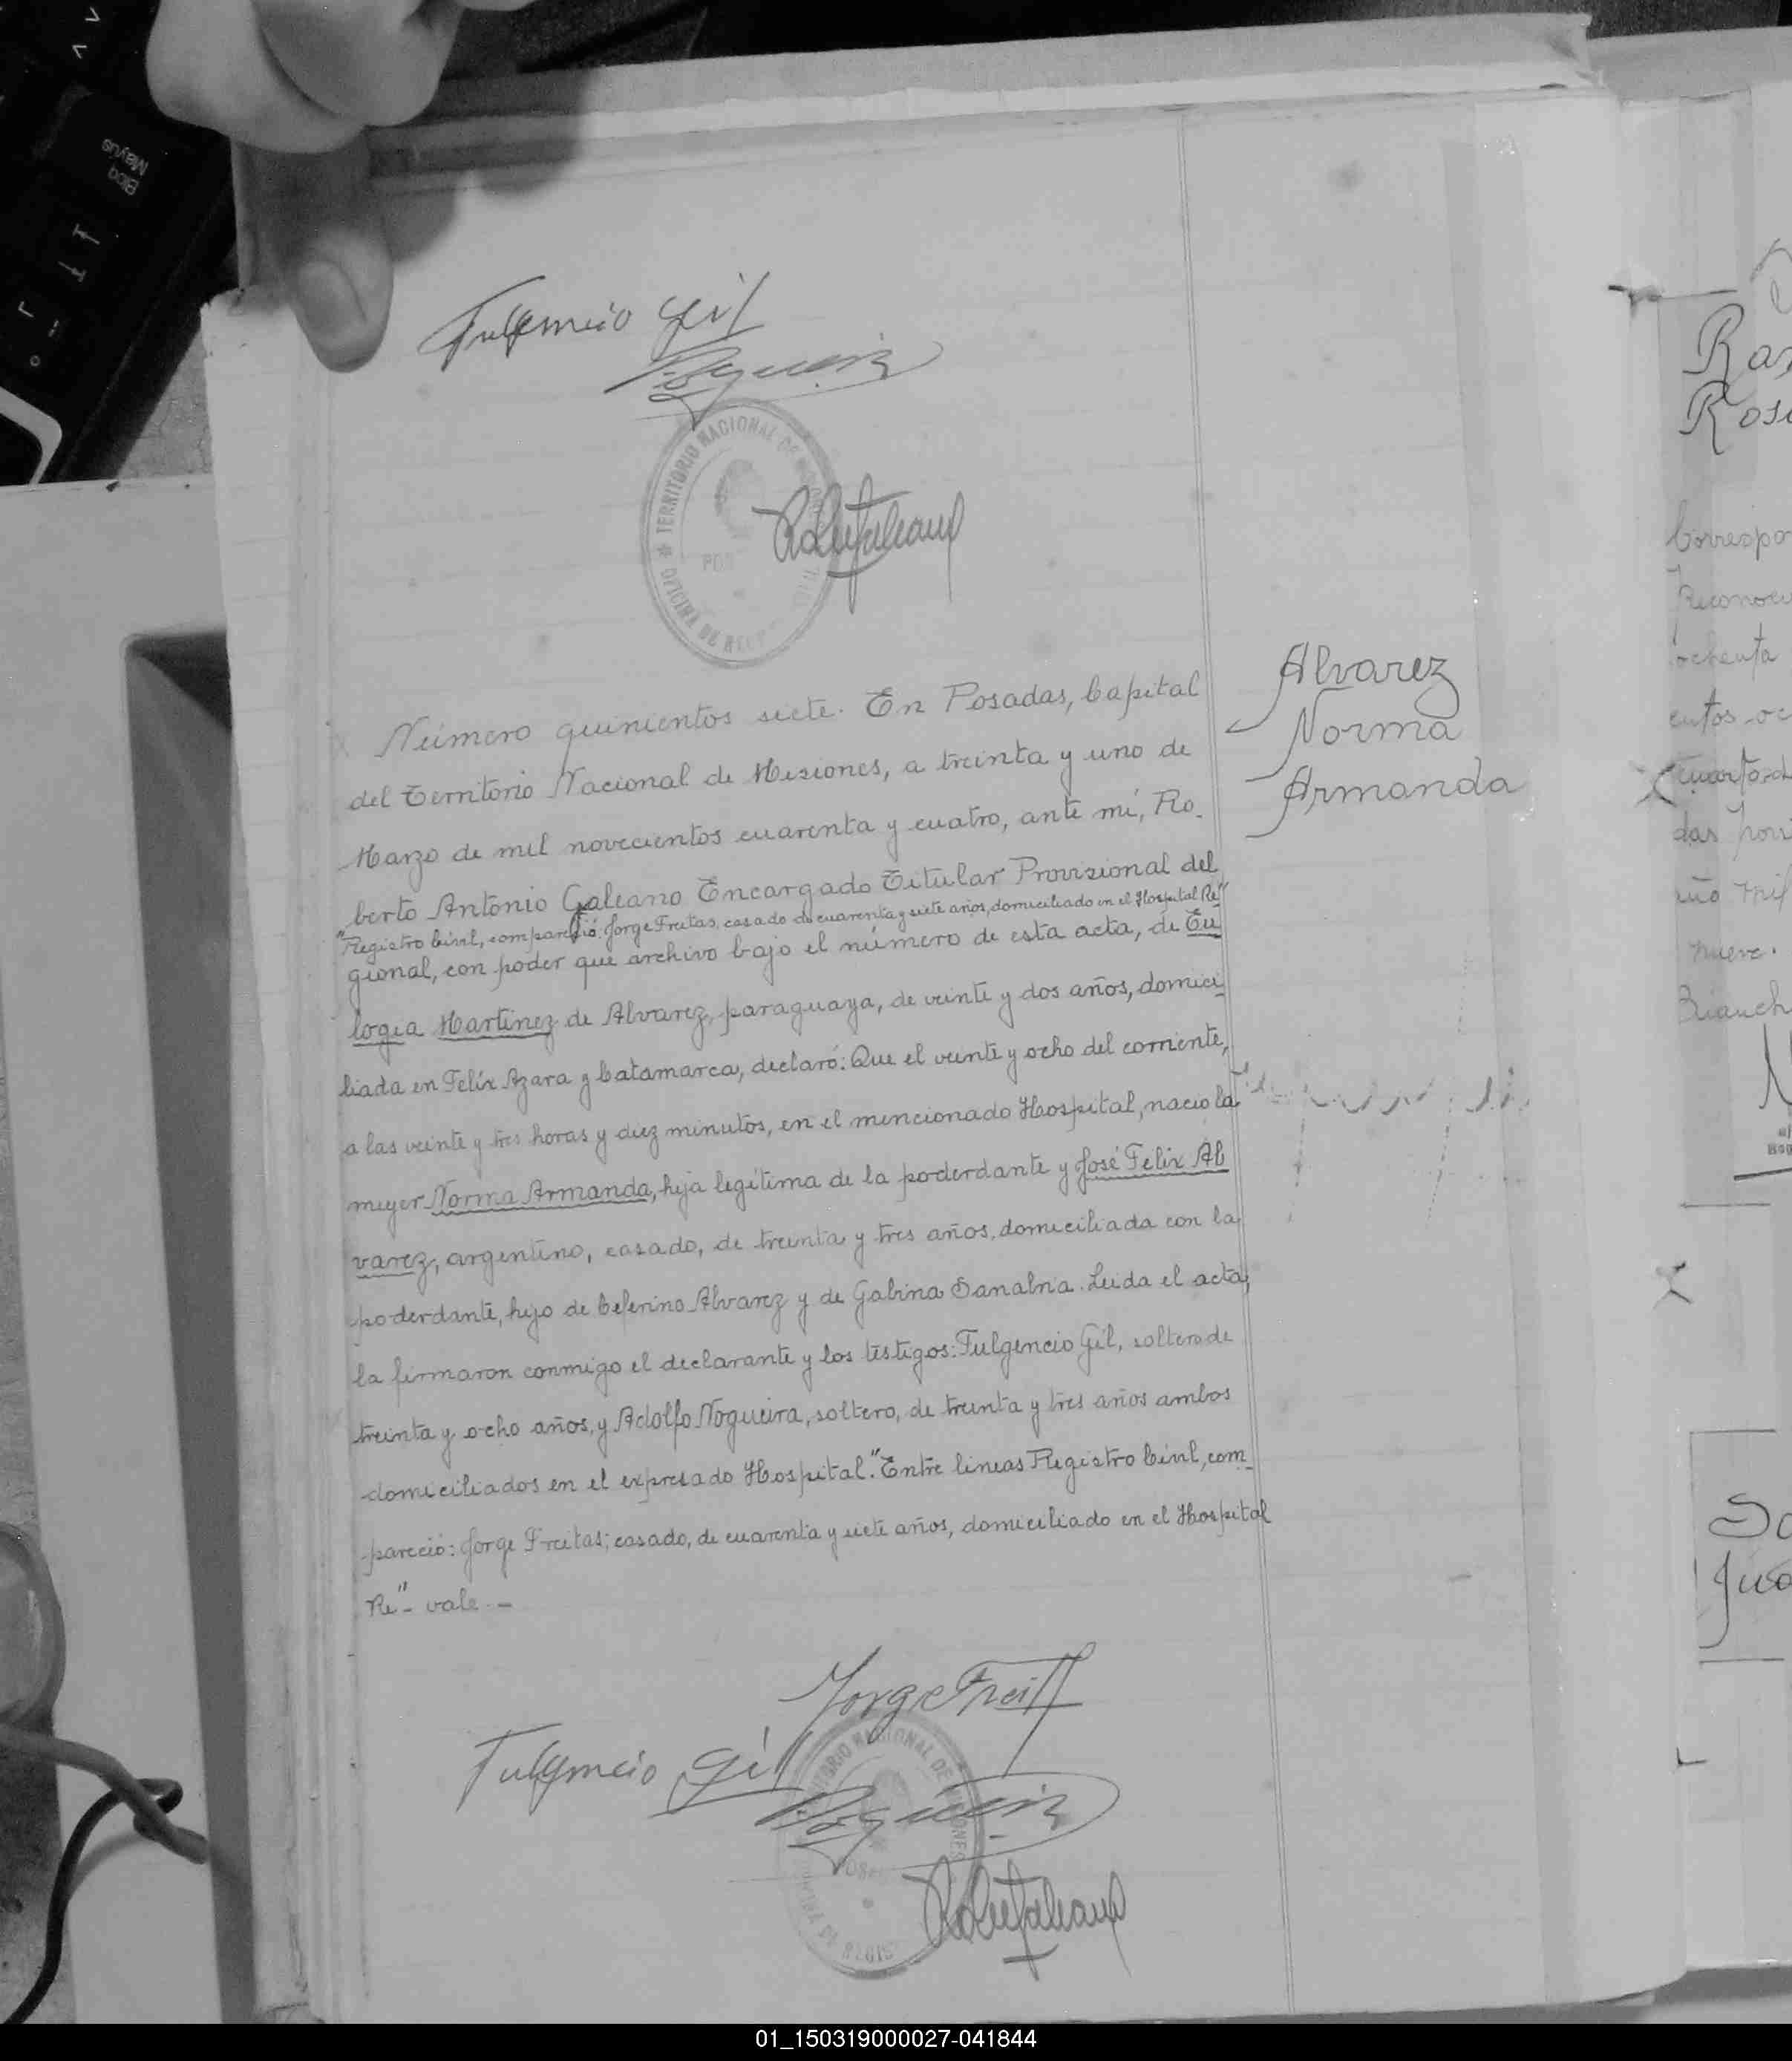 Fulgencio Gil
Nogueira
TERRITORIO NACIONAL DE MISIONES
OFICINA DE REGISTRO
Alvarez
Norma
Armanda
Número quinientos siete. En Posadas, Capital
del Territorio Nacional de Misiones, a treinta y uno de
Marzo de mil novecientos cuarenta y cuatro, ante mí, Ro-
berto Antonio Galeano Encargado Titular Provisional del
"Registro Civil, compareció: Jorge Freitas, casado de cuarenta y siete años, domiciliado en el Hospital Re"
gional, con poder que archivo bajo el número de esta acta, de Eu
logia Martinez de Alvarez, paraguaya, de veinte y dos años, domici
liada en Felix Azara y Catamarca, declaró: Que el veinte y ocho del corriente,
a las veinte y tres horas y diez minutos, en el mencionado Hospital, nacio la
mujer Norma Armanda, hija legítima de la poderdante y José Felix Al
varez, argentino, casado, de treinta y tres años, domiciliada con la
poderdante, hijo de Ceferino Alvarez y de Gabina Sanabria. Leida el acta,
la firmaron conmigo el declarante y los testigos: Fulgencio Gil, soltero de
treinta y ocho años, y Adolfo Nogueira, soltero, de treinta y tres años ambos
domiciliados en el expresado Hospital. "Entre lineas Registro Civil, com-
pareció: Jorge Freitas; casado, de cuarenta y siete años, domiciliado en el Hospital
Re" - vale. -
Jorge Freitas
Fulgencio Gil
Nogueira
Ros
Correspo
ochenta
das
mil
nueve.
Bianch
Bloq
Mayús
01_150319000027-041844